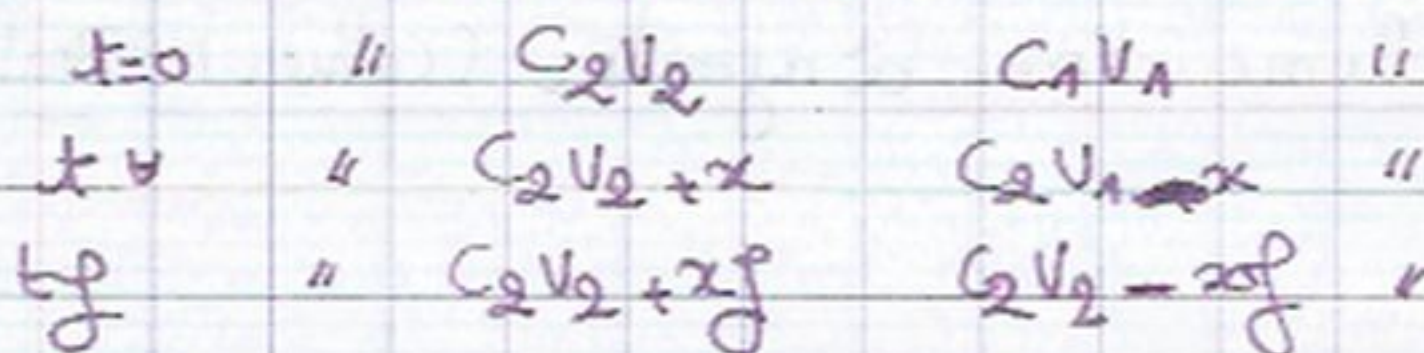 t=0 " C₂V₂ C₁V₁ "
t ∀ " C₂V₂ + x C₂V₁ - x "
tf " C₂V₂ + xf C₂V₂ - xf "